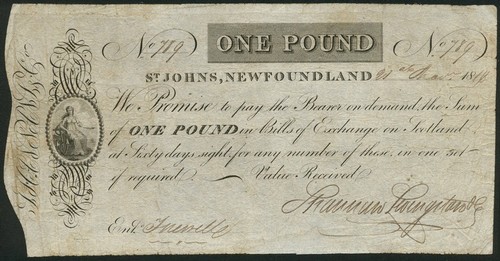 No. 789 ONE POUND No. 789
ST JOHNS, NEWFOUNDLAND 21st 18
We Promise to pay the Bearer on demand, the Sum
of ONE POUND in Bills of Exchange on Scotland
at Sixty days sight, for any number of these, in one set
if required. Value Received
Shannon Livingston & Co
Entd.